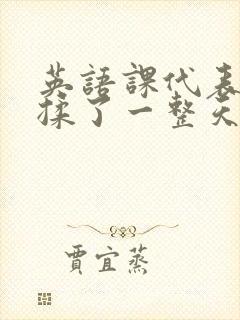 英語課代表
揉了一整天
賈宜蒸